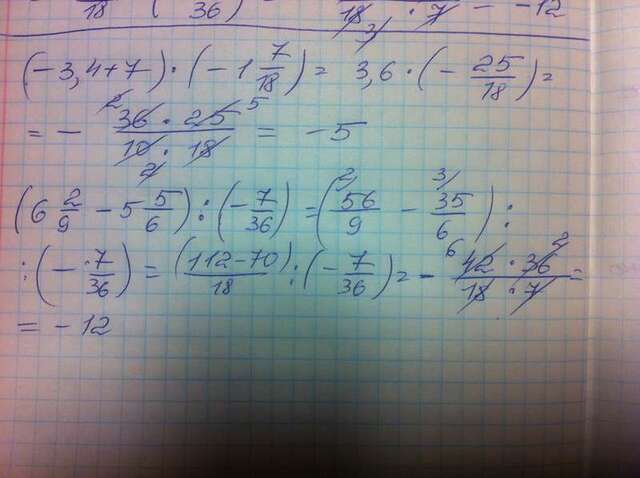 18 ( 36 ) 18 · 7 = -12
(-3,4+7) · (-1 7/18) = 3,6 · (- 25/18) =
= - 36 · 25 / 10 · 18 = -5
(6 2/9 - 5 5/6) : (- 7/36) = (56/9 - 35/6) :
: (- 7/36) = (112-70)/18 : (- 7/36) = - 42 · 36 / 18 · 7 =
= -12